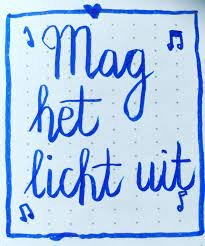 Mag
het
licht uit